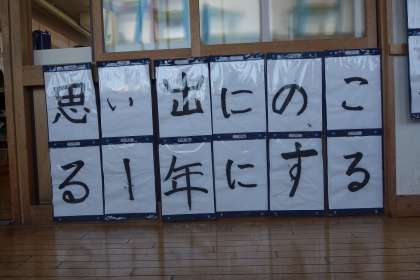 思い出にのこ
る1年にする